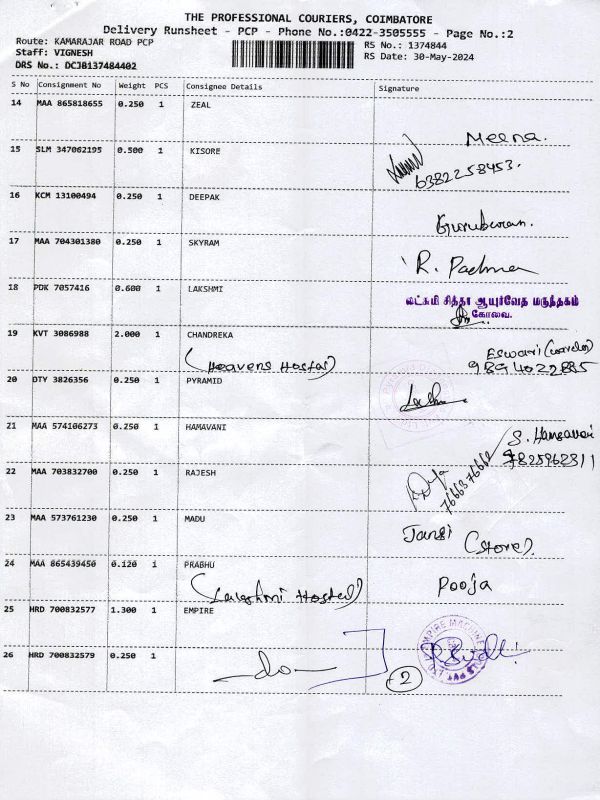 THE PROFESSIONAL COURIERS, COIMBATORE
Delivery Runsheet - PCP - Phone No.:0422-3505555 - Page No.:2
Route: KAMARAJAR ROAD PCP
RS No.: 1374844
Staff: VIGNESH
RS Date: 30-May-2024
DRS No.: DCJB137484402
S No Consignment No Weight PCS Consignee Details Signature
14 MAA 865818655 0.250 1 ZEAL
Meena.
15 SLM 347062195 0.500 1 KISORE
6382258453.
16 KCM 13100494 0.250 1 DEEPAK
Guruburan.
17 MAA 704301380 0.250 1 SKYRAM
R. Padma
18 PDK 7057416 0.600 1 LAKSHMI
லட்சுமி சித்தா ஆயுர்வேத மருந்தகம்
கோவை.
19 KVT 3086988 2.000 1 CHANDREKA
(Heavens Hostal)
Eswari (warden)
9894022885
20 DTY 3826356 0.250 1 PYRAMID
21 MAA 574106273 0.250 1 HAMAVANI
S. Hamsaveni
7825962811
22 MAA 703832700 0.250 1 RAJESH
23 MAA 573761230 0.250 1 MADU
Jansi (store).
24 MAA 865439450 0.120 1 PRABHU
(Lakshmi Hostel)
Pooja
25 HRD 700832577 1.300 1 EMPIRE
26 HRD 700832579 0.250 1
-do-
2